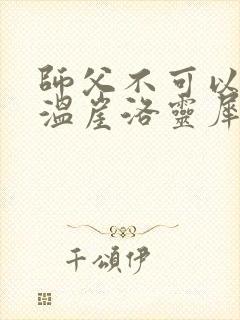 師父不可以
溫崖洛靈犀
千頌伊